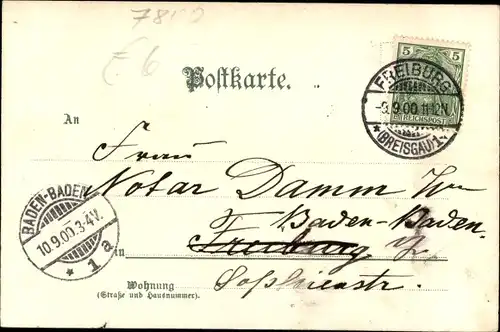 7850
£6
5 5
REICHSPOST
FREIBURG
-9.9.00.11-12N.
* (BREISGAU) 1 *
Postkarte.
An
Frau
Notar Damm Ww
Baden-Baden
in Freiburg
Sophienstr.
BADEN-BADEN
10.9.00.3-4V.
* 1a
Wohnung
(Straße und Hausnummer).